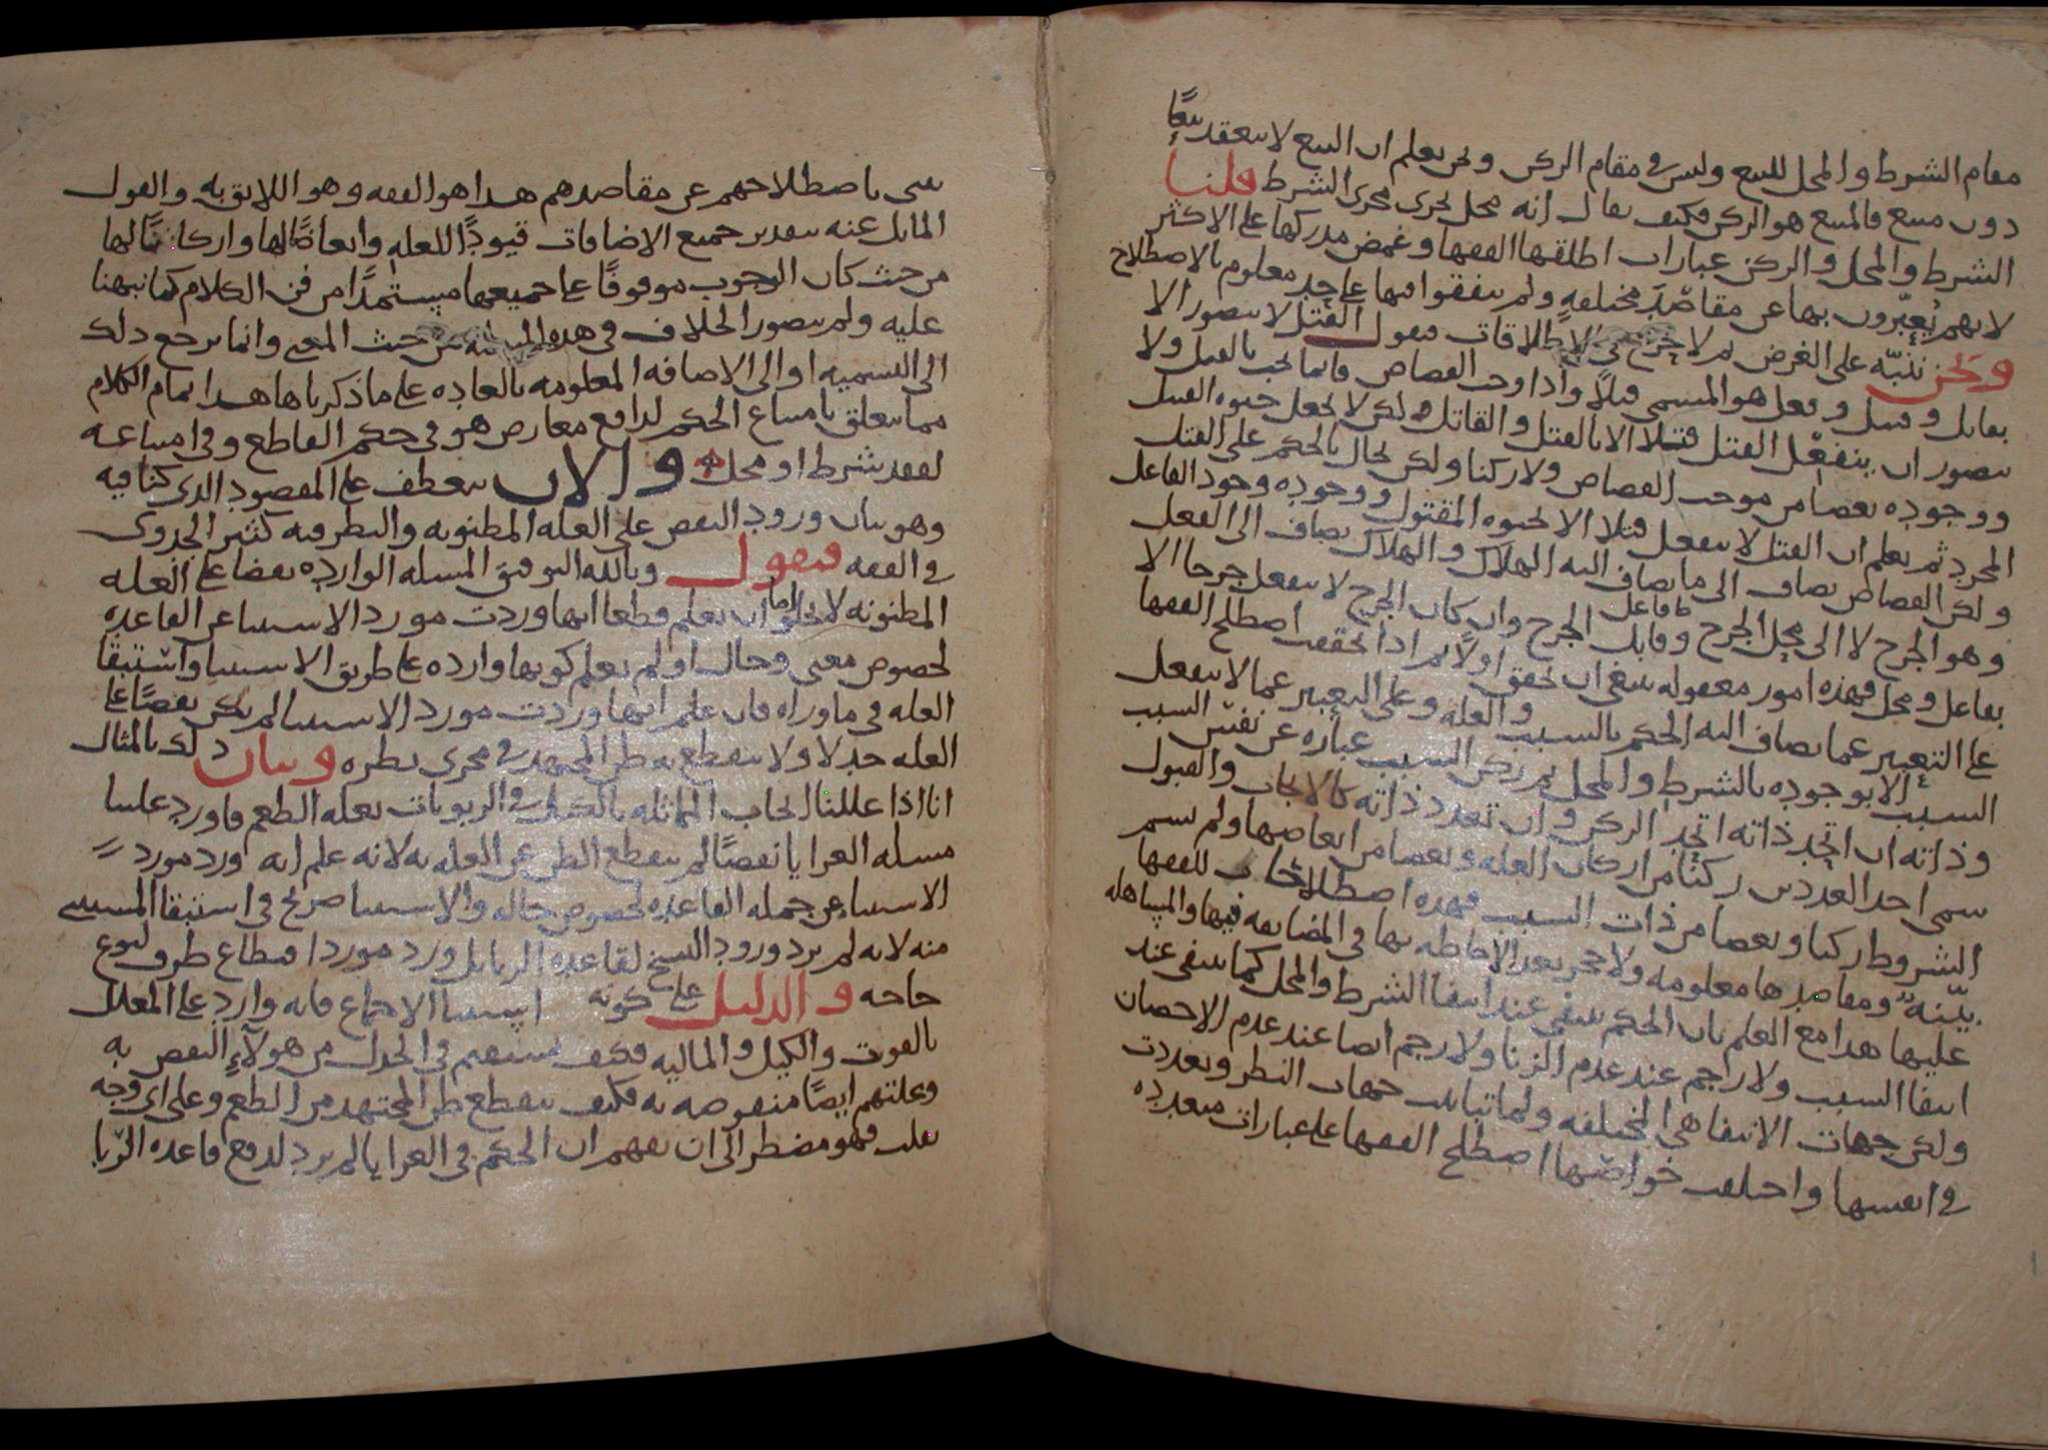 مقام الشرط والمحل للبيع وليس في مقام الركن ونحن نعلم ان البيع لا ينعقد بيعًا
دون مبيع فالمبيع هو الركن فكيف يقال انه محل يجرى مجرى الشرط قلنا
الشرط والمحل والركن عبارات اطلقها الفقها وغمض مدركها على الاكثر
لانهم يُعبّرون بها عن مقاصد مختلفه ولم يتفقوا فيها على حد معلوم بالاصطلاح
ونحن ننبّه على الغرض ثم لا حرج في الاطلاقات فنقول القتل لا يتصور الا
بقاتل وقتيل وفعل هو المسمى قتلًا واذا وجب القصاص فانما يجب بالقتل ولا
يتصور ان ينفعل القتل قتلا الا بالقتل والقاتل ولكن لا نجعل حيوه القتيل
ووجوده بعضا من موجب القصاص ولا ركنا ولكن يحال بالحكم على القتل
المجرد ثم نعلم ان القتل لا ينفعل قتلا الا بحيوه المقتول ووجوده ووجود الفاعل
ولكن القصاص يضاف الى ما يضاف اليه الهلاك والهلاك يضاف الى الفعل
وهو الجرح لا الى محل الجرح وفاعل الجرح وان كان الجرح لا ينفعل جرحا الا
بفاعل ومحل فهذه امور معقوله ينبغى ان تحقق اولًا ثم اذا تحققت اصطلح الفقها
على التعبير عما يضاف اليه الحكم بالسبب والعله وعلى التعبير عما لا ينفعل
السبب الا بوجوده بالشرط والمحل ثم ركن السبب عباره عن نفس السبب
وذاته ان اتحد ذاته اتحد الركن وان تعدد ذاته كالايجاب والقبول
سمى احد العددين ركنًا من اركان العله وبعضا من ابعاضها ولم يسم
الشروط ركنا وبعضا من ذات السبب فهذه اصطلاحات للفقها
بيّنة ومقاصدها معلومه ولا حجر بعد الاحاطه بها في المضايقه فيها والمساهله
عليها هذا مع العلم بان الحكم ينتفى عند انتفا الشرط والمحل كما ينتفى عند
انتفا السبب ولا رجم عند عدم الزنا ولا رجم ايضا عند عدم الاحصان
ولكن جهات الانتفا هى المختلفه ولما تباينت جهات النظر وتعددت
في انفسها واختلفت خواصها اصطلح الفقها على عبارات متعدده
تنبى باصطلاحهم عن مقاصدهم هذا هو الفقه وهو اللايق به والقول
المايل عنه بتقدير جميع الاضافات قيودًا للعله وابعاضًا لها واركانًا لها
من حيث كان الوجوب موقوفًا على جميعها مستمدًا من فن الكلام كما نبهنا
عليه ولم يتصور الخلاف في هذه من حيث المعنى وانما يرجع ذلك
الى التسميه او الى الاضافه المعلومه بالعاده على ما ذكرناها هذا تمام الكلام
مما يتعلق بامتناع الحكم لدافع معارض هو في حكم القاطع وفي امتناعه
لفقد شرط او محل والان نعطف على المقصود الذى كنا فيه
وهو بيان ورود النقض على العله المظنونه والنظر فيه كثير الجدوى
في الفقه فنقول وبالله التوفيق المسله الوارده نقضا على العله
المظنونه لا تخلوا اما ان نعلم قطعا انها وردت مورد الاستثنا عن القاعده
لخصوص معنى وحال او لم نعلم كونها وارده على طريق الاستثنا واستبقا
العله في ما وراه فان علم انها وردت مورد الاستثنا لم يكن نقضًا على
العله جدلا ولا ينقطع به ظن المجتهد في مجرى نظره وبيان ذلك بالمثال
انا اذا عللنا ايجاب المماثله بالكيل في الربويات بعله الطعم فاورد علينا
مسله العرايا نقضًا لم ينقطع الظن عن العله به لانه علم انه ورد مورد
الاستثناء عن جمله القاعده لخصوص حاله والاستثنا صريح في استبقا المستثنى
منه لانه لم يرد ورود النسخ لقاعده الربا بل ورد موردا اقتطاع طرف لنوع
حاجه والدليل على كونه استثنا الاجماع فانه وارد على المعلل
بالقوت والكيل والماليه فكيف يستقيم في الجدل من هولآء النقض به
وعلتهم ايضًا منقوضه به فكيف ينقطع ظن المجتهد من الطعم وعلى اى وجه
تقلب فهو مضطر الى ان يفهم ان الحكم في العرايا لم يرد لدفع قاعده الربا